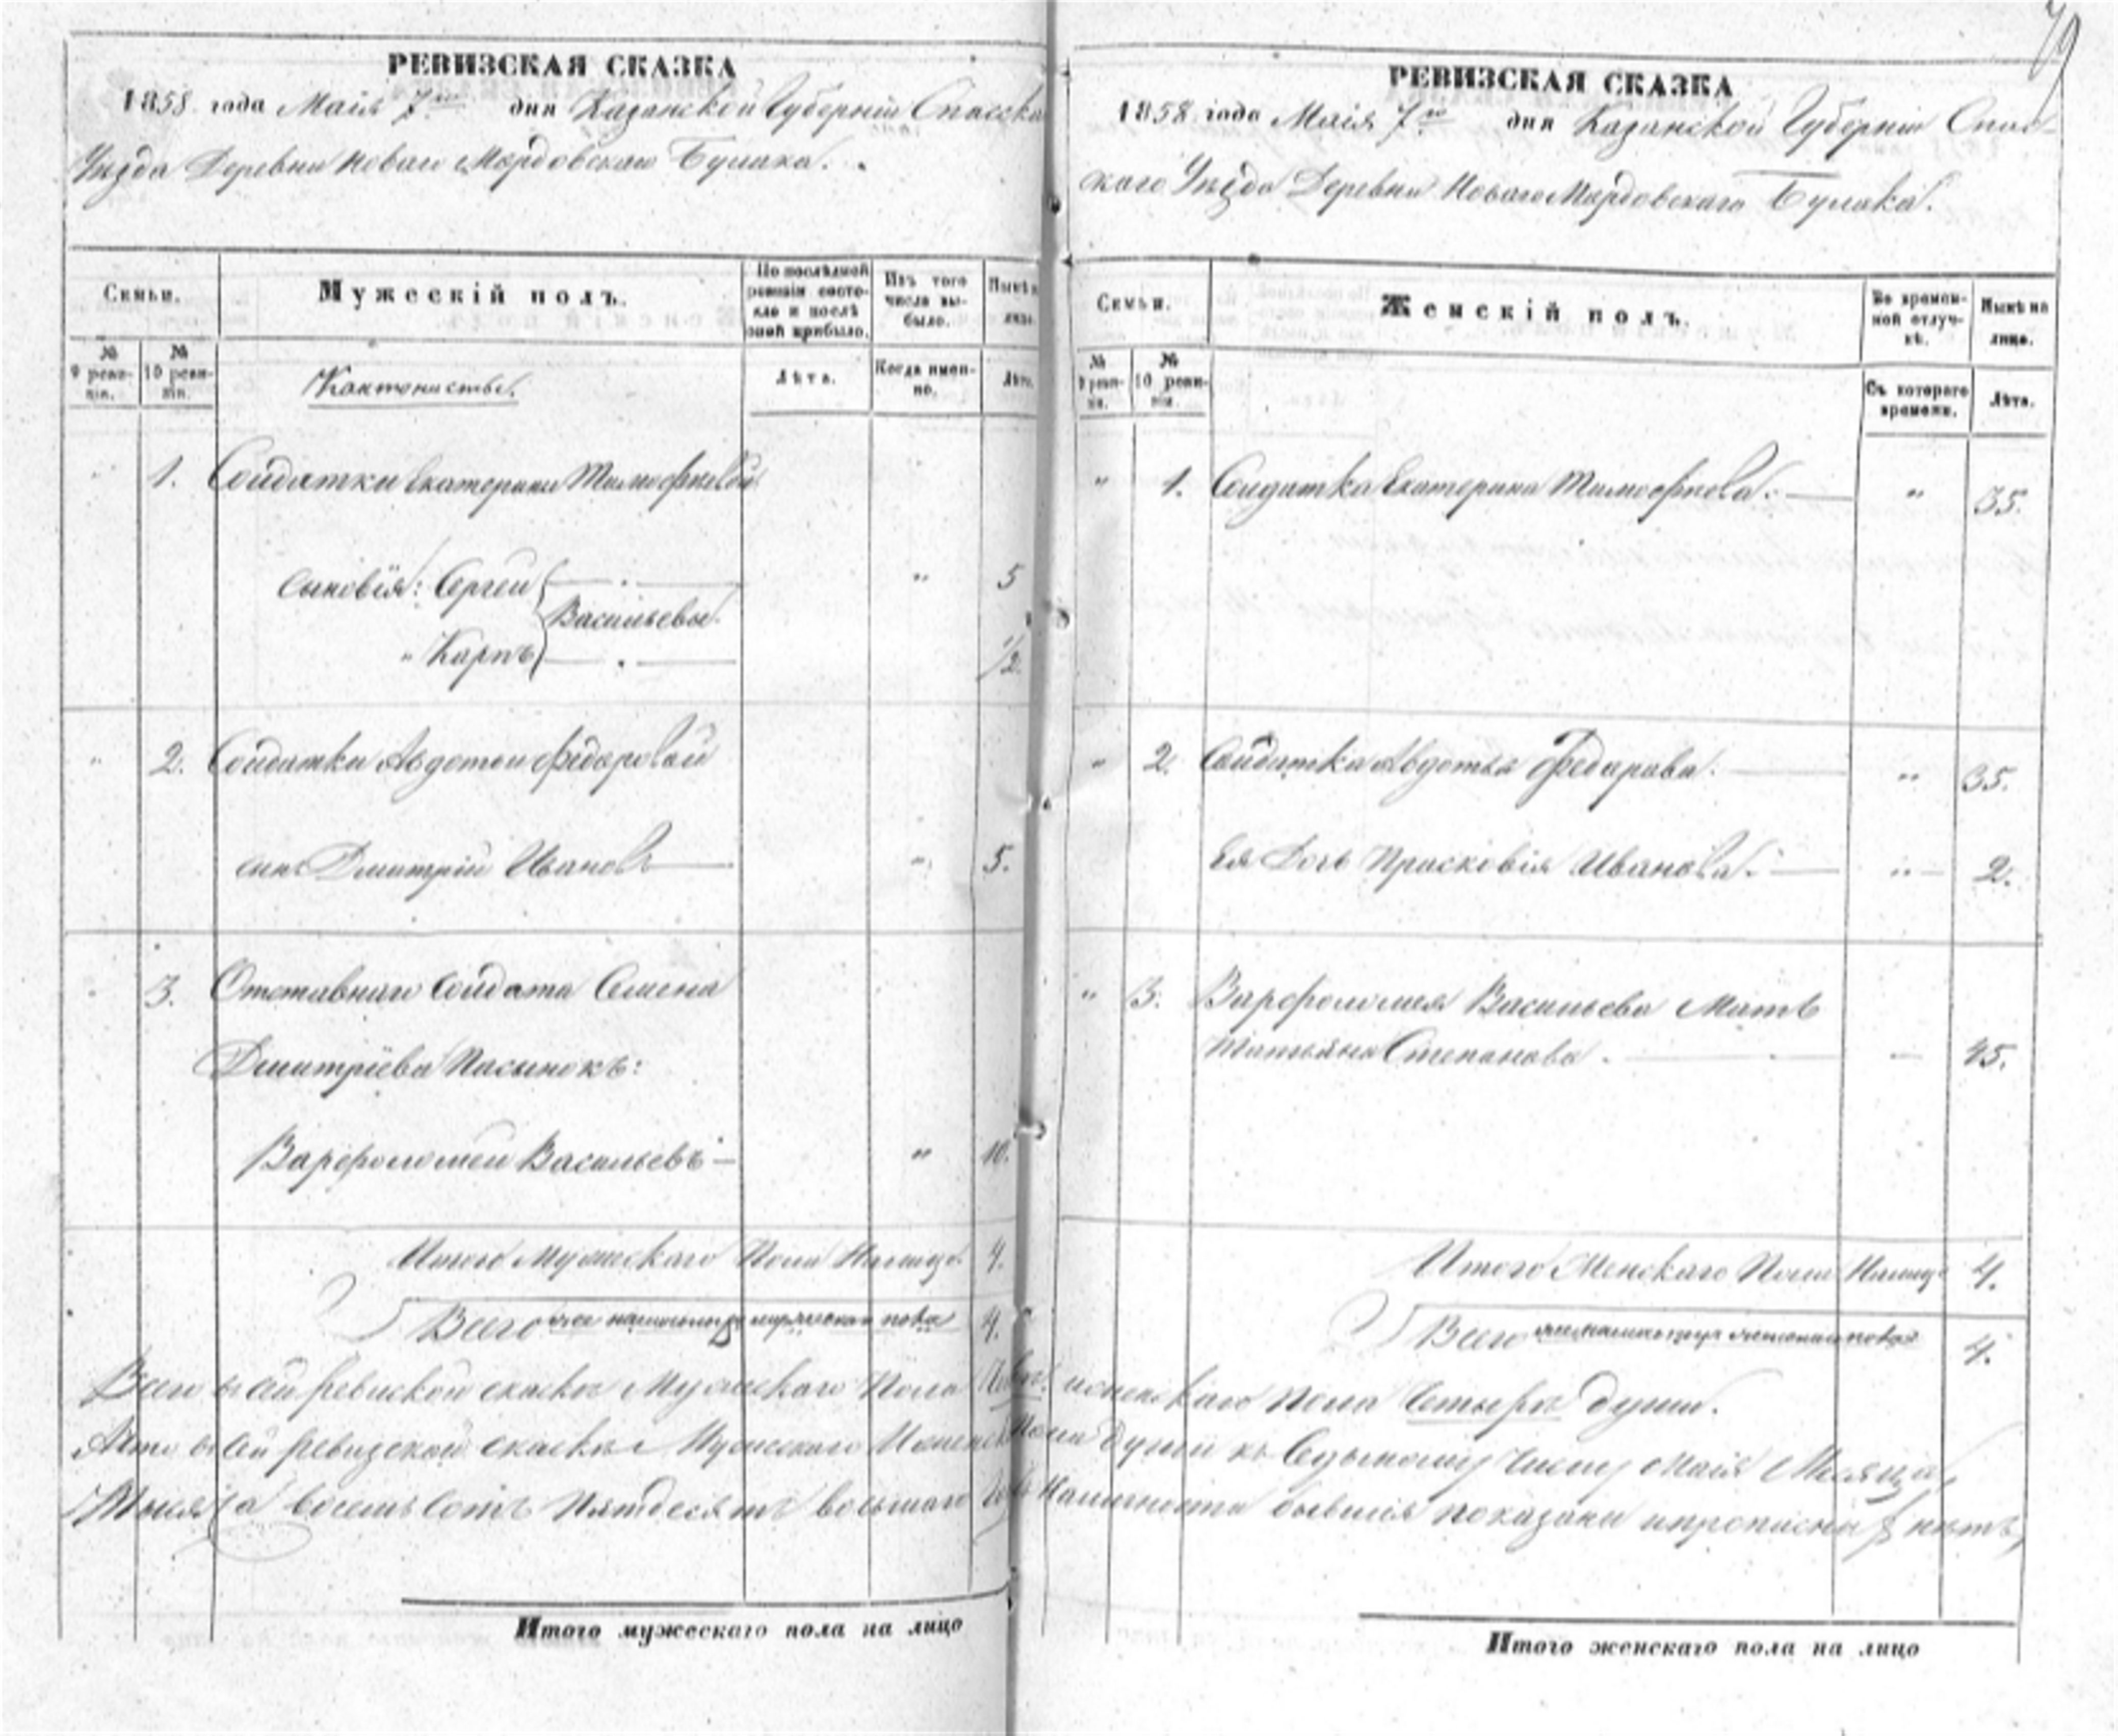 79
РЕВИЗСКАЯ СКАЗКА
1858 года Маія 7го дня Казанской Губерніи Спасска
Уѣзда Деревни Новаго Мордовскаго Булака.
Семьи.
Мужескій полъ.
По послѣдней ревизіи состояло и послѣ оной прибыло.
Изъ того числа выбыло.
Нынѣ на лицо.
№ 9 ревизіи.
№ 10 ревизіи.
Кантонисты.
Лѣта.
Когда именно.
Лѣта.
" 1. Солдатки Екатерины Тимофѣевой
Сыновія: Сергей " 5
Васильевы.
" Карпъ 1/2.
" 2. Солдатки Авдотьи Федаровой
сынъ Дмитрій Ивановъ " 5.
" 3. Отставнаго Солдата Семена
Дмитріева Пасынокъ:
Варфоломей Васильевъ " 10.
Итого Мужескаго Пола Налицо 4.
Всего 4.
РЕВИЗСКАЯ СКАЗКА
1858 года Маія 7го дня Казанской Губерніи Спас-
каго Уѣзда Деревни Новаго Мордовскаго Булака.
Семьи.
Женскій полъ.
Во временной отлучкѣ.
Нынѣ на лицо.
№ 9 ревизіи.
№ 10 ревизіи.
Съ котораго времени.
Лѣта.
" 1. Солдатка Екатерина Тимофѣева. " 35.
" 2. Солдатка Авдотья Федарава. " 35.
Ея Дочь Прасковія Иванова. " 2.
" 3. Варфоломея Васильева Мать
Татьяна Степанова. 45.
Итого Женскаго Пола Налицо 4.
Всего 4.
Всего в сей ревиской скаскѣ Мужескаго Пола женскаго пола Четырѣ души.
Что в сей ревизской скаскѣ Мужескаго Пола душъ къ Седьмому Числу Маія Месяца,
Тысяча восемь сотъ Пятдесятъ восьмаго Года Наличности бывшія показаны и прописныхъ нѣтъ,
Итого мужескаго пола на лицо
Итого женскаго пола на лицо